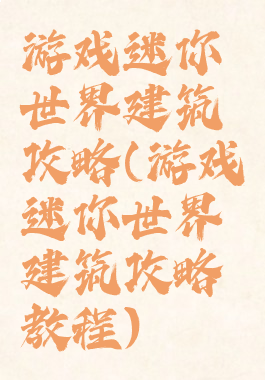 游戏迷你
世界建筑
攻略(游戏
迷你世界
建筑攻略
教程)